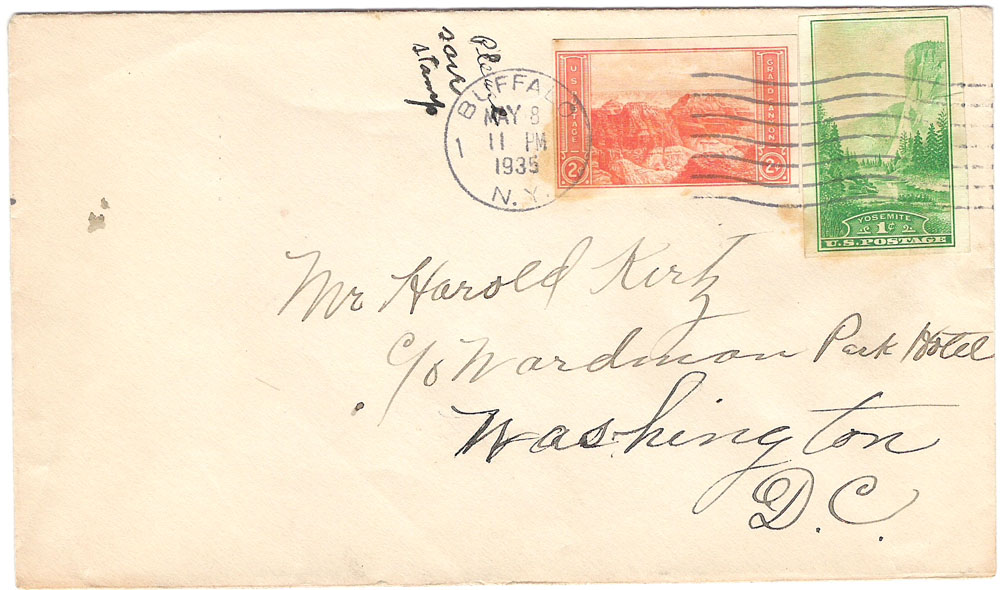 Please
save
stamp
BUFFALO
1
MAY 8
11 PM
1935
N.Y.
U.S. POSTAGE
GRAND CANYON
2¢ 2¢
YOSEMITE
1¢
U.S. POSTAGE
Mr Harold Kertz
c/o Wardman Park Hotel
Washington
D.C.